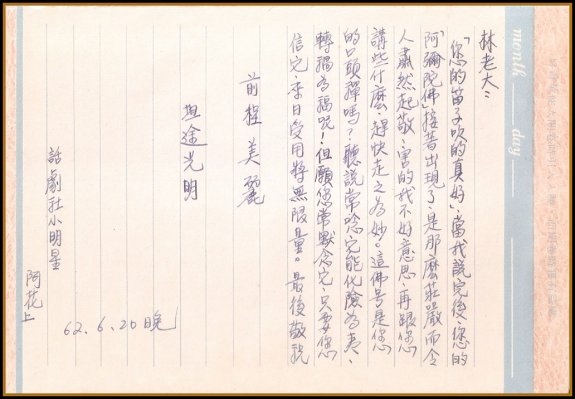 林老大:
「您的笛子吹的真好」,當我說完後,您的
「阿彌陀佛」接著出現了,是那麼莊嚴而令
人肅然起敬,害的我不好意思,再跟您
講些什麼,趕快走之為妙。這佛号是您
的口頭彈嗎?聽說常唸它能化險為夷、
轉禍為福呢!但願您常默念它,只要您
信它,來日受用將無限量。最後敬祝
前程美麗
坦途光明
話劇社小明星
阿花上
62.6.20晚
day